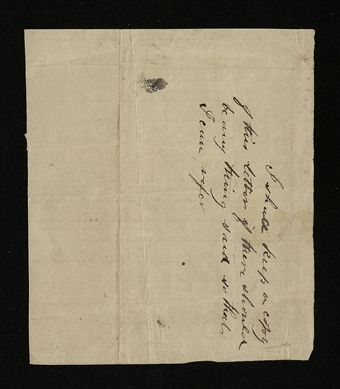 I shall keep a copy
of this letter if there should
be any thing said so that
I can refer